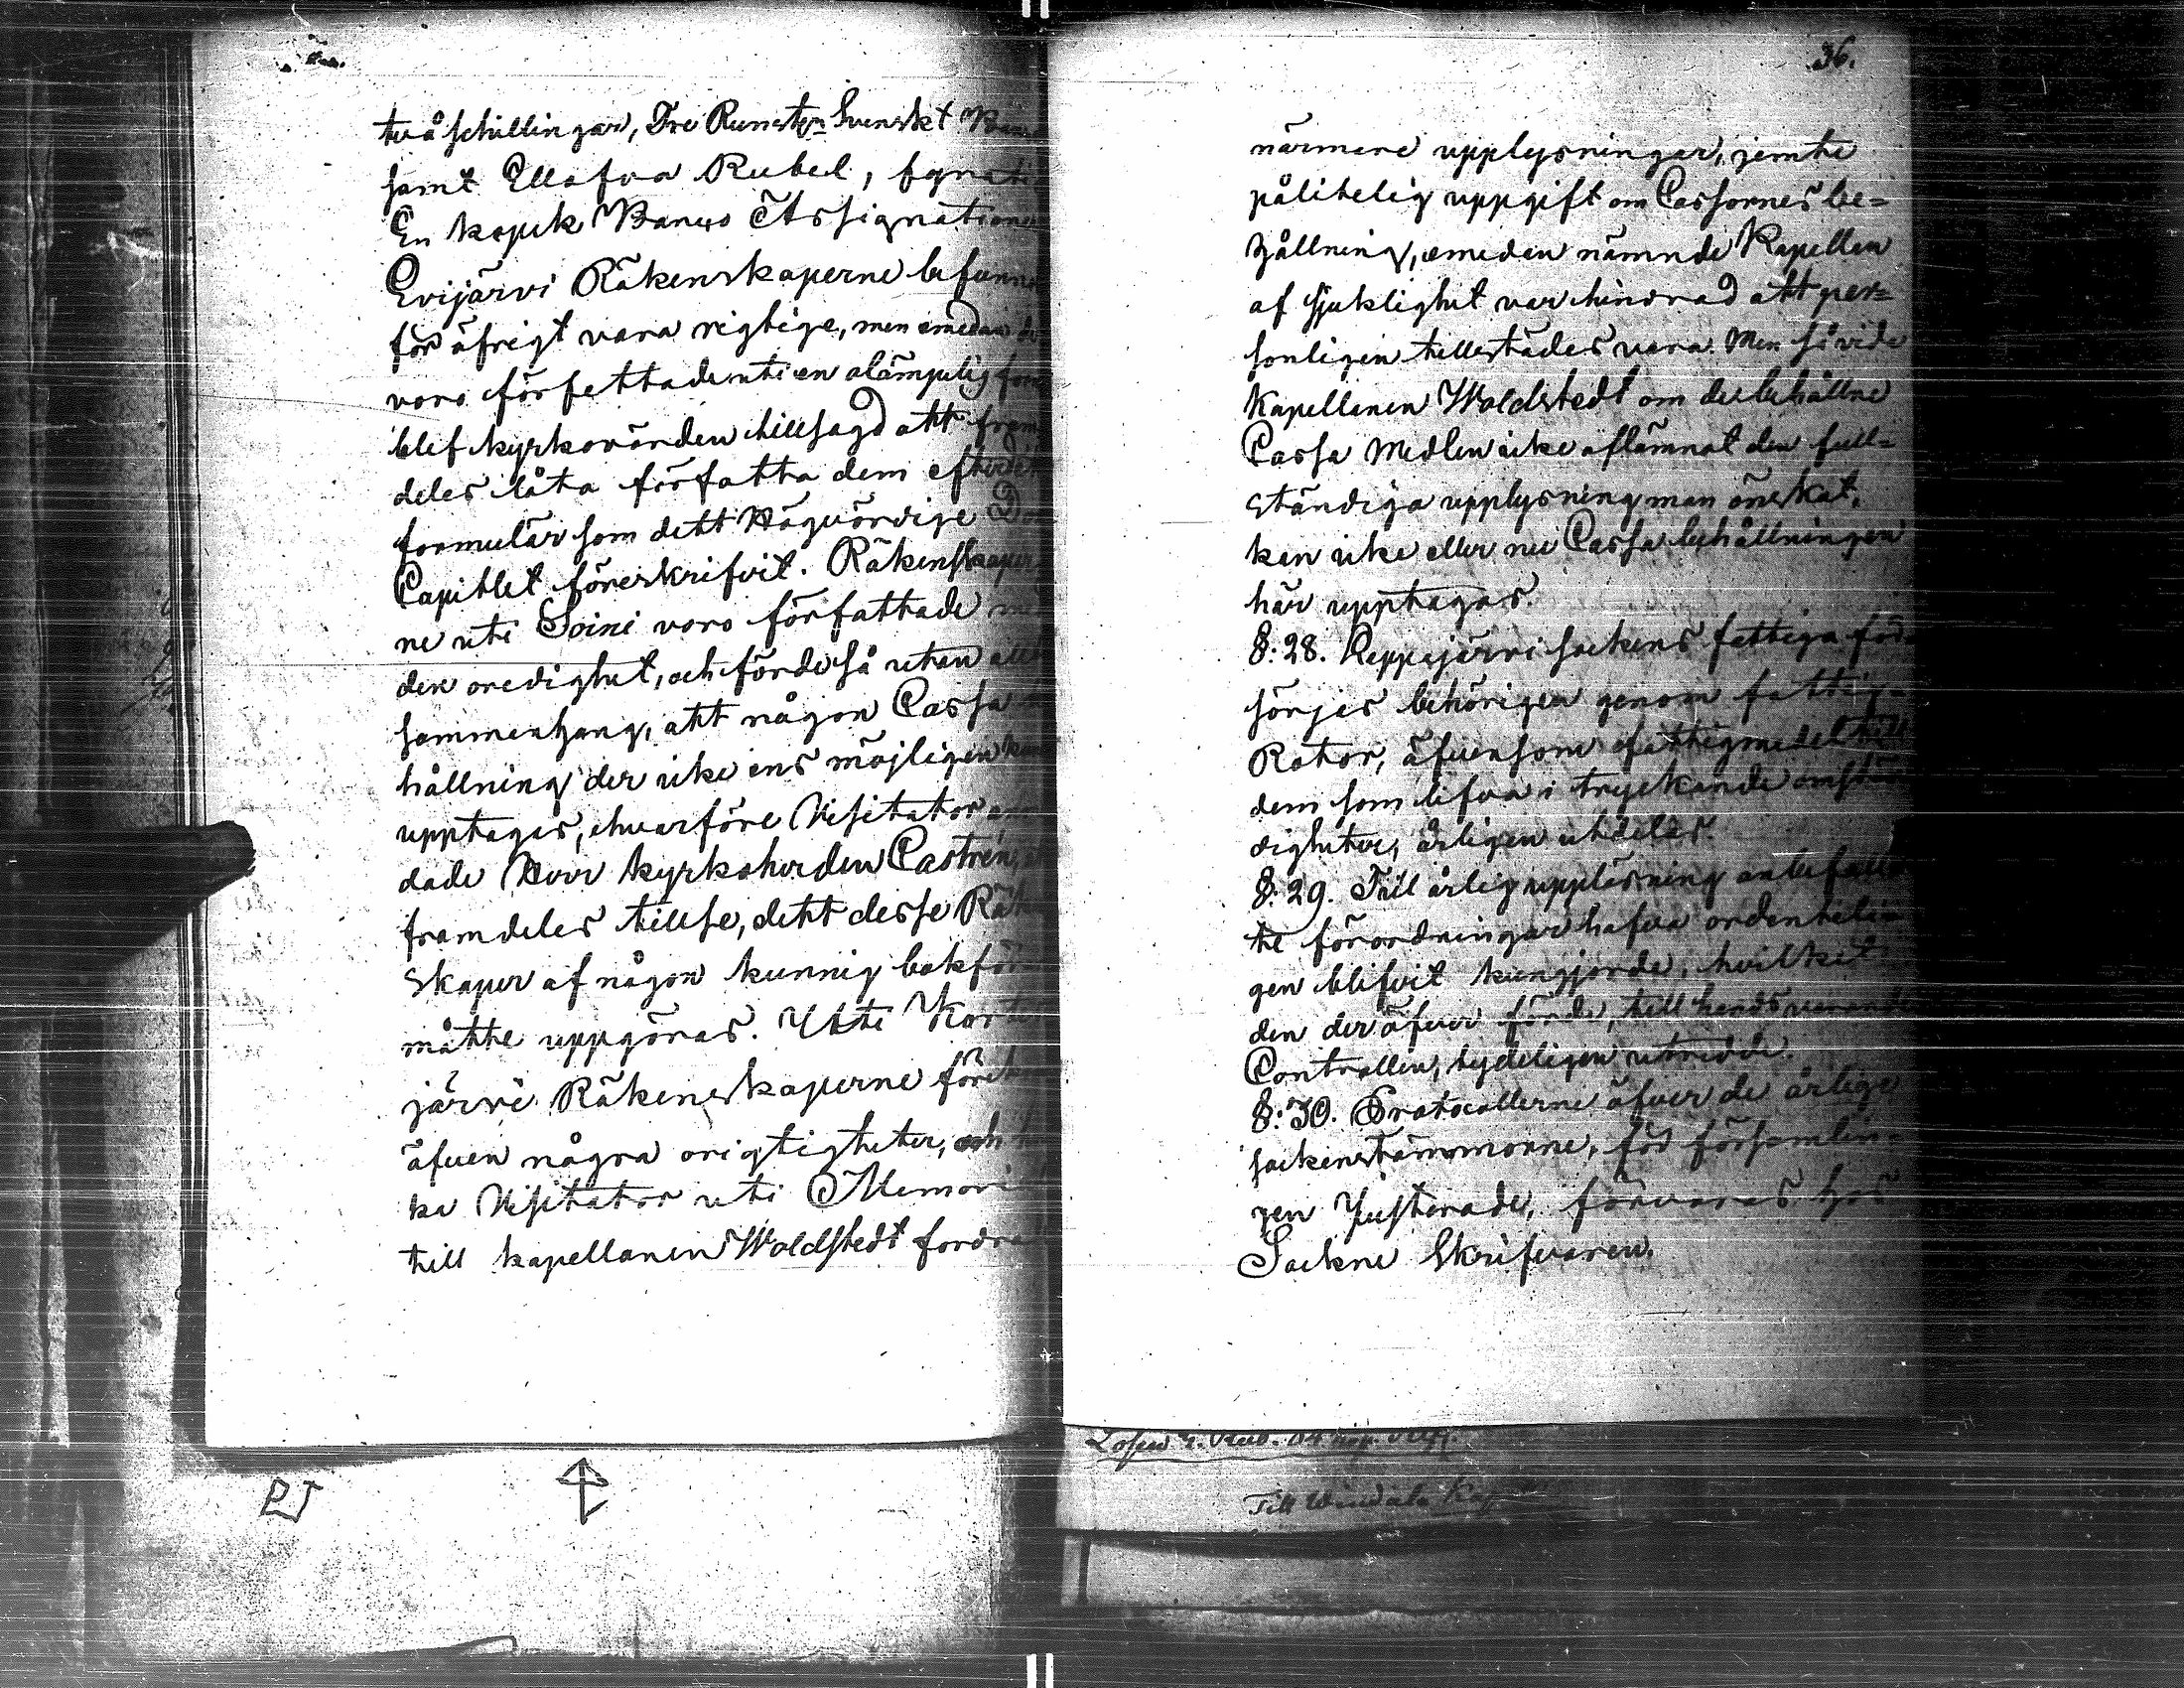 två schillingar, Tre Runstyn Svenskt
samt Ellofva Rubel,
En kopek Banco Assignationer
Evijärvi Räkenskaperne befunno
för öfrigt vara rigtige, men emedan de
voro författade uti en olämpelig form
blef kyrkovärden tillsagd att fram-
deles låta författa dem efter det
formulär som dett Högvördige Dom
Capitlet föreskrifvit. Räkenskaper
ne uti Soini voro författade med
den oredighet, och förde så utan allt
sammenhang, att någon Cassa
hållning der icke ens möjligen kan
upptagas, hvarföre Visitator
dade Herr kyrkoherden Castrén,
framdeles tillse, dett desse Räken
skaper af någon kunnig bokför
måtte uppgöras. Utti Kort
järvi Räkenskaperne
äfven några origtigheter, och
ka Visitator uti Memori
till kapellanen Woldstedt fordra
36.
närmare upplysningar, jemte
pålitelig uppgift om Cassornes be=
hållning, emedan nämnde Kapellan
af sjuklighet var hindrad att per=
sonligen tillstädes vara. Men såvida
Kapellanen Woldstedt om de behållne
Cassa Medlen icke aflämnat den full=
ständiga upplysning man önskat,
kan icke eller nu Cassa behållningen
här upptagas.
§: 28. Lappajärvi sockens fattiga för-
sörjas behörigen genom fattig-
Rotar, äfvensom fattigmedel till
dem som lefva i tryckande omstän
digheter, årligen utdelas.
§: 29. Till årlig uppläsning anbefall
te förordningar hafva ordenteli-
gen blifvit kungjorde, hvilket
den deröfver förde, till hands varande
Controllen, tydeligen utredde.
§: 30. Protocollerne öfver de årlige
sockenstämmorne, för församlin-
gen Justerade, förvaras hos
Sockne Skrifvaren.
Till Windala Kap
PJ